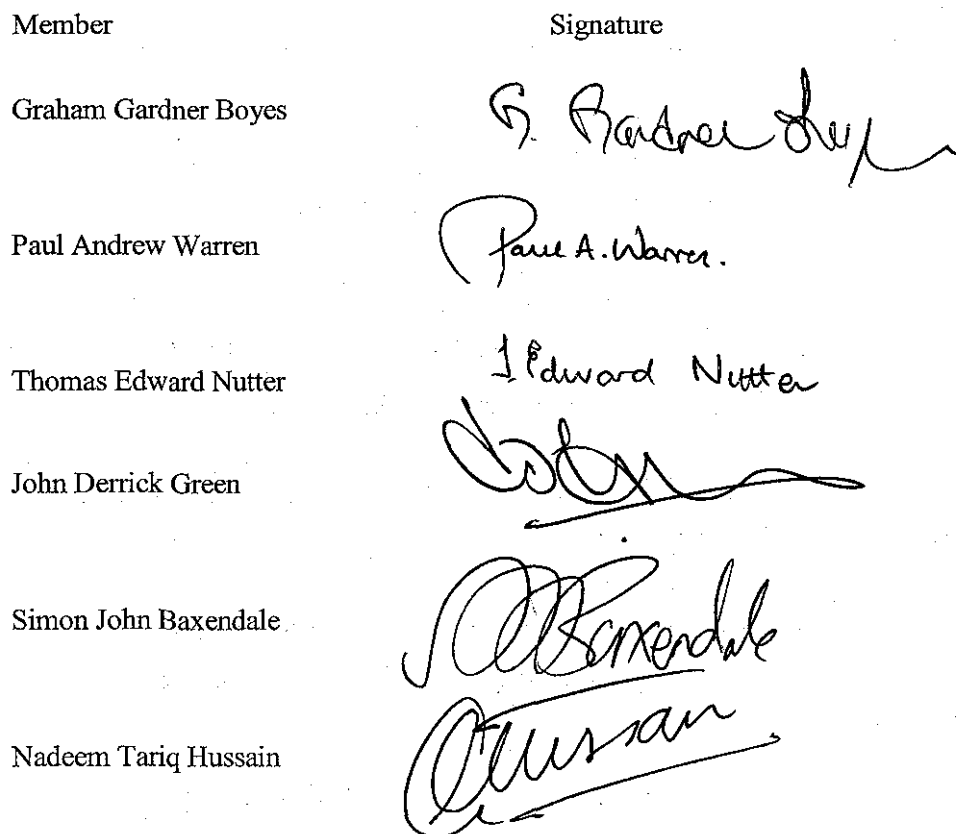 Member Signature
Graham Gardner Boyes G. Gardner
Paul Andrew Warren Paul A. Warren.
Thomas Edward Nutter T. Edward Nutter
John Derrick Green
Simon John Baxendale Baxendale
Nadeem Tariq Hussain Hussain